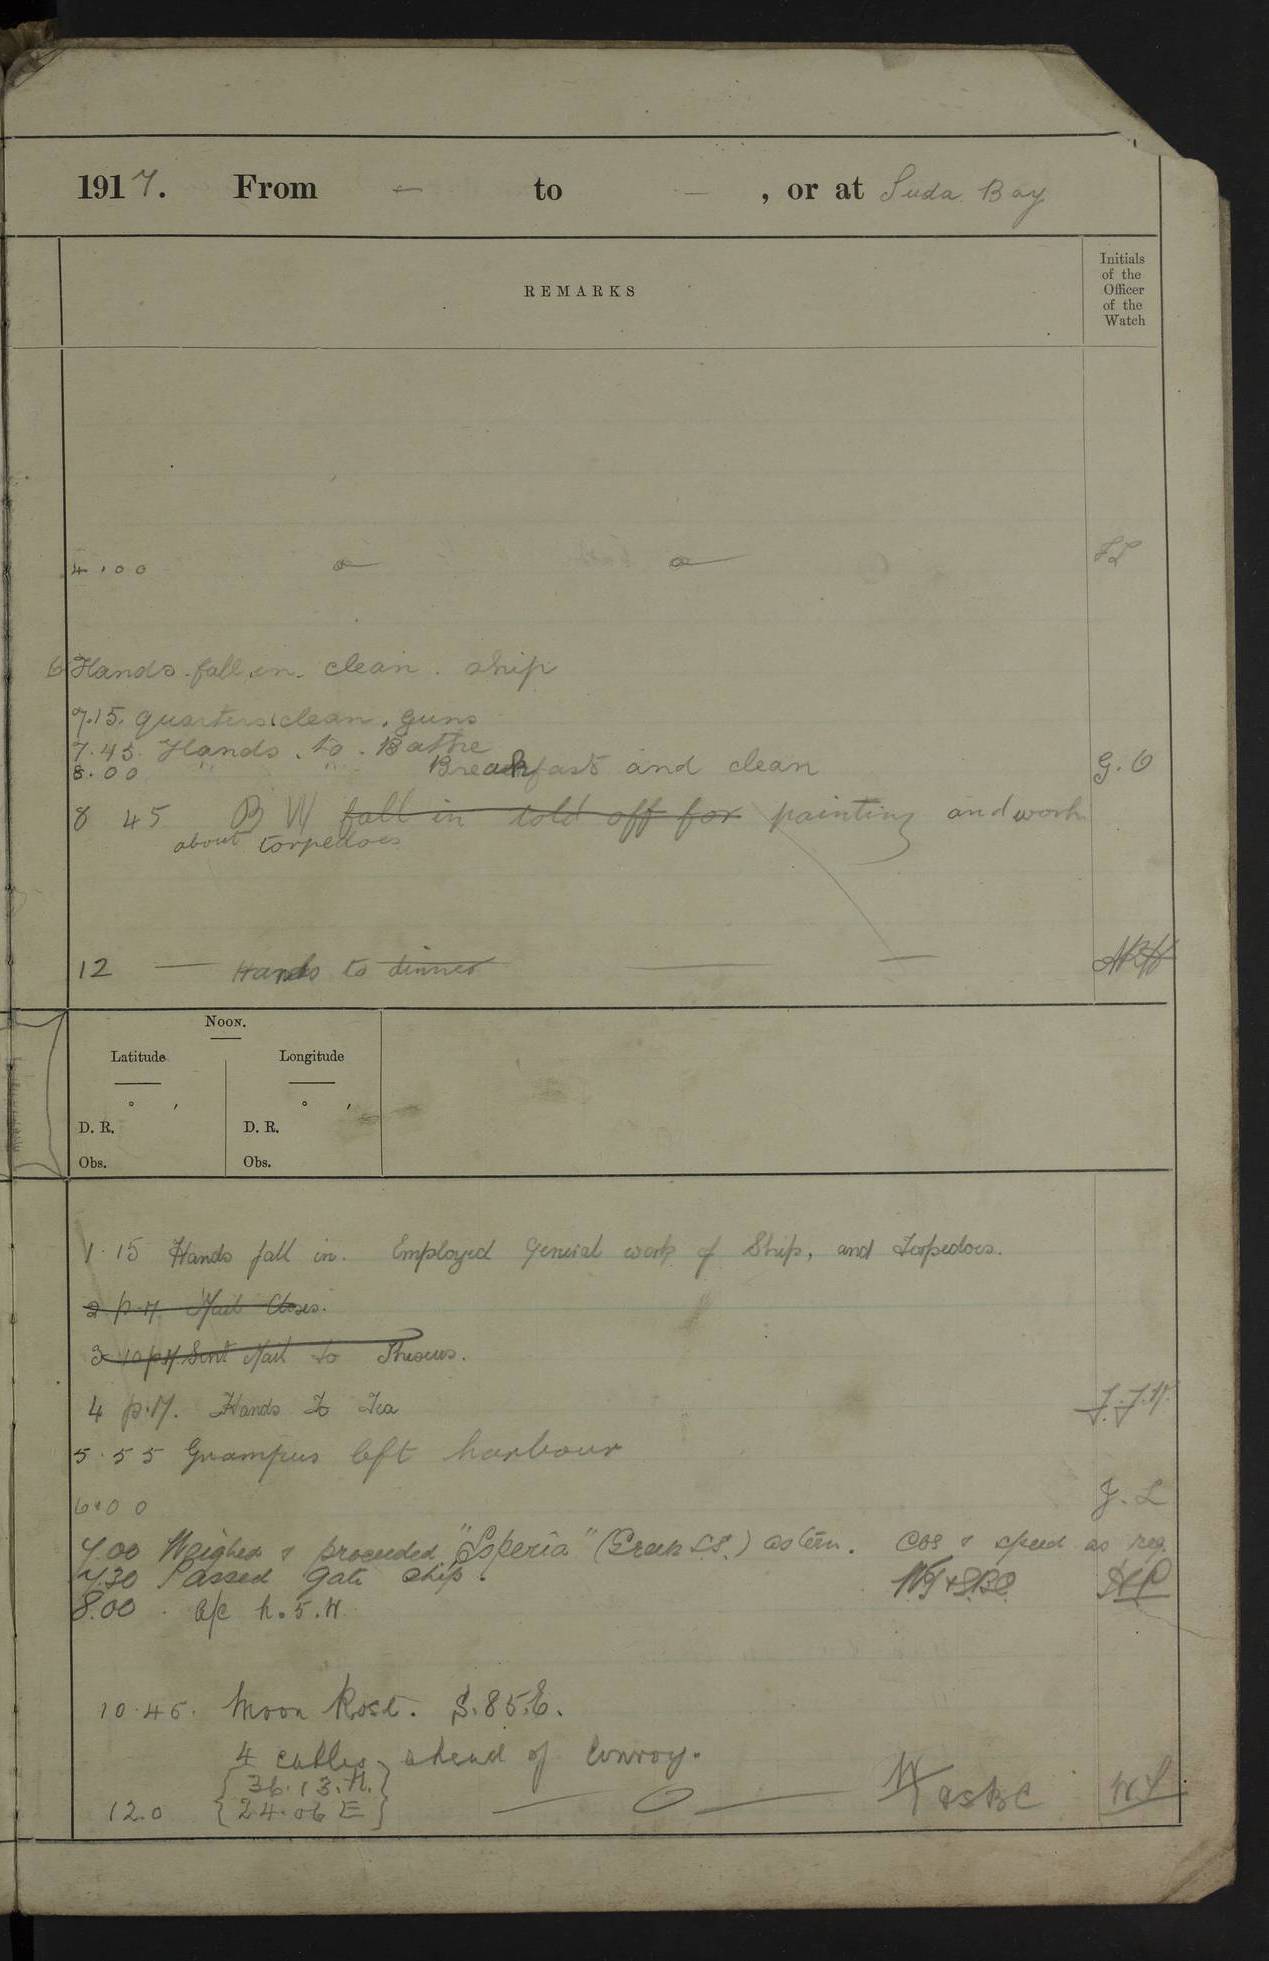 1917. From - to - , or at Suda Bay
REMARKS
Initials of the Officer of the Watch
4.00
6 Hands fall in clean ship
7.15. quarters clean guns
7.45. Hands to Bathe
8.00 " " Breakfast and clean G.O
8 45 B W fall in told off for painting and work
about torpedoes
12 — Hands to dinner — —
NOON.
Latitude Longitude
° ′ ° ′
D. R. D. R.
Obs. Obs.
1.15 Hands fall in. Employed General work of Ship, and Torpedoes.
2 p.M. Mail Closes.
3 10 p.M. Sent Mail to Theseus.
4 p.M. Hands To Tea
5.55 Grampus left harbour
6.00 J. L
7.00 Weighed & proceeded "Esperia" (Greek SS.) astern. Cos & speed as req.
7.30 Passed Gate Ship.
8.00 a/c N.5.W
10.45. Moon Rose. S.85.E.
4 cables ahead of Convoy.
{36.13.N.}
12.0 {24.06 E}